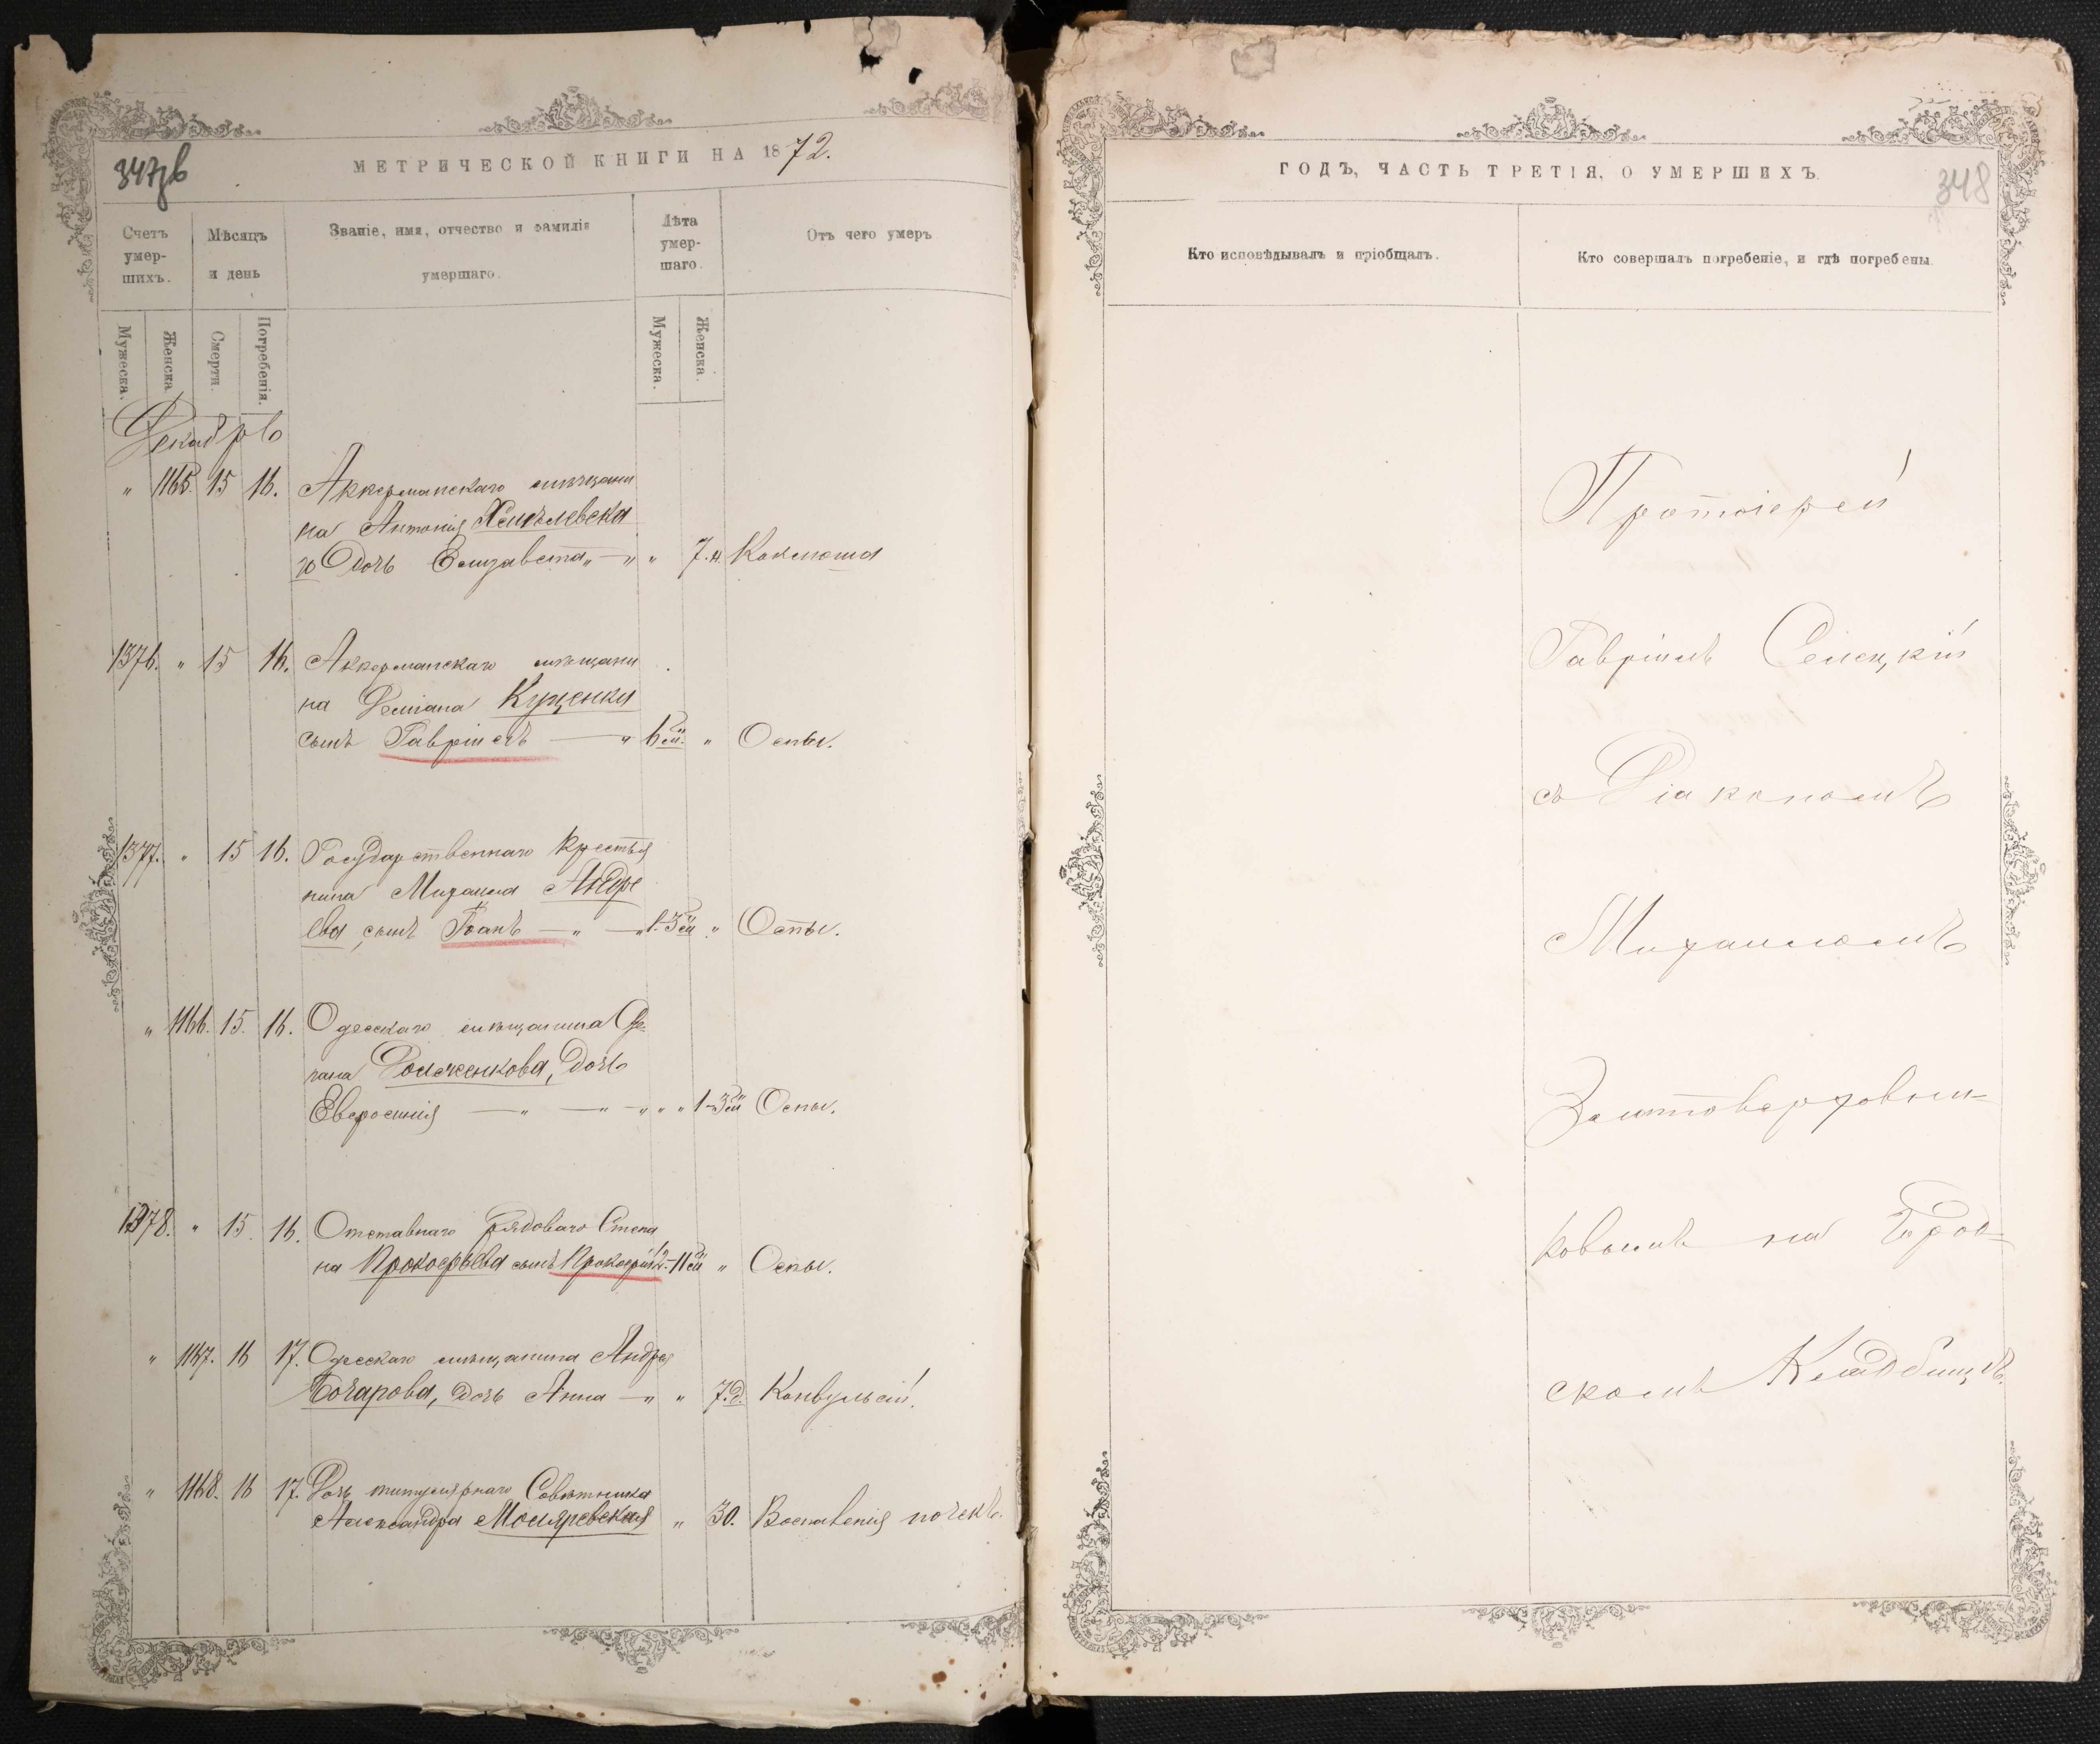 347об
МЕТРИЧЕСКОЙ КНИГИ НА 1872.
Счетъ умер-шихъ.
Мѣсяцъ и день
Званіе, имя, отчество и фамилія умершаго.
Лѣта умер-шаго.
Отъ чего умеръ
Мужеска. Женска. Смерти. Погребенія. Мужеска. Женска.
Декабрь
" 1165. 15 16. Аккерманскаго мѣщани
на Антонія
го дочь Елизавета " — " " 7.н. Коклюша
1376. " 15 16. Аккерманскаго мѣщани
на Деміана Куценка
сынъ Гавріилъ — " 6 м. " Оспы.
1377. " 15 16. Государственнаго крестья
нина Михаила Андре
ева, сынъ Іоанъ — " — " 1-3 м. " Оспы.
" 1166. 15. 16. Одесскаго мѣщанина
Долженкова, дочь
Евросинія — " — " — " " " 1-3 м. Оспы.
1378. " 15 16. Отставнаго рядоваго Степа
на Прокофьева сынъ Прокофій 2-11 м. " Оспы.
" 1167. 16 17. Одесскаго мѣщанина Андрея
Бочарова, дочь Анна — " " 7.д. Конвульсій.
" 1168. 16 17. Дочь титулярнаго Совѣтника
Александра Моляревская " 30. Воспаленія почекъ.
ГОДЪ, ЧАСТЬ ТРЕТІЯ, О УМЕРШИХЪ.
348
Кто исповѣдывалъ и пріобщалъ.
Кто совершалъ погребеніе, и гдѣ погребены.
Протоіерей
Гавріилъ Селецкій
съ Діакономъ
Михаиломъ
ковымъ на Город-
скомъ Кладбищѣ.